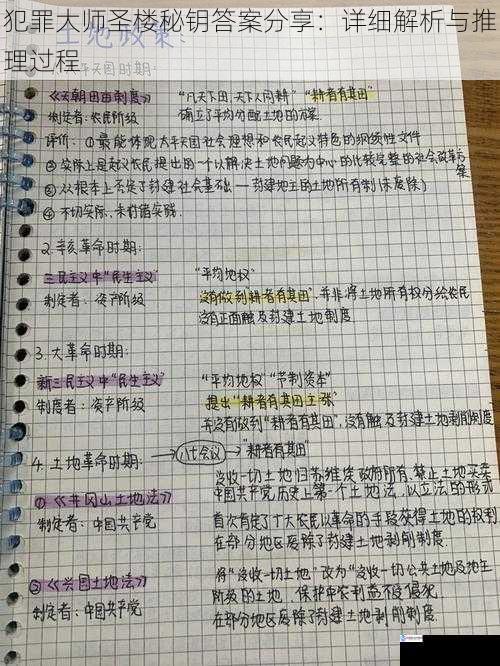 犯罪大师圣楼秘钥答案分享：详细解析与推
理过程
土地政策：
太平天国时期：
《天朝田亩制度》 "凡天下田，天下人同耕" "耕者有其田"
制定者：农民阶级 确立了平均分配土地的方案
评价：①最能体现太平天国社会理想和农民起义特色的纲领性文件
②实际上是起义农民提出的一个以解决土地问题为中心的比较完整的社会改革方案
③从根本上否定了封建社会基础——封建地主的土地所有制(未废除)
④不切实际，未付诸实践.
2.辛亥革命时期：
三民主义中"民生主义" "平均地权"
制定者：资产阶级 没有做到"耕者有其田"，并非将土地所有权分给农民
没有正面触及封建土地制度
3.大革命时期：
新三民主义中"民生主义" "平均地权""节制资本"
制度者：资产阶级 提出"耕者有其田主张"
并没有做到"耕者有其田"，没有触及封建土地剥削制度
4.土地革命时期：→八七会议→"耕者有其田"
没收一切土地归苏维埃政府所有.禁止土地买卖
①《井冈山土地法》 中国共产党历史上第一个土地法，以立法的形式
制定者：中国共产党 首次肯定了广大农民以革命的手段获得土地的权利
在部分地区废除了封建土地剥削制度.
②《兴国土地法》 将"没收一切土地"改为"没收一切公共土地及地主
制定者：中国共产党 阶级的土地，保护中农利益不受侵犯
在部分地区废除了封建土地剥削制度.